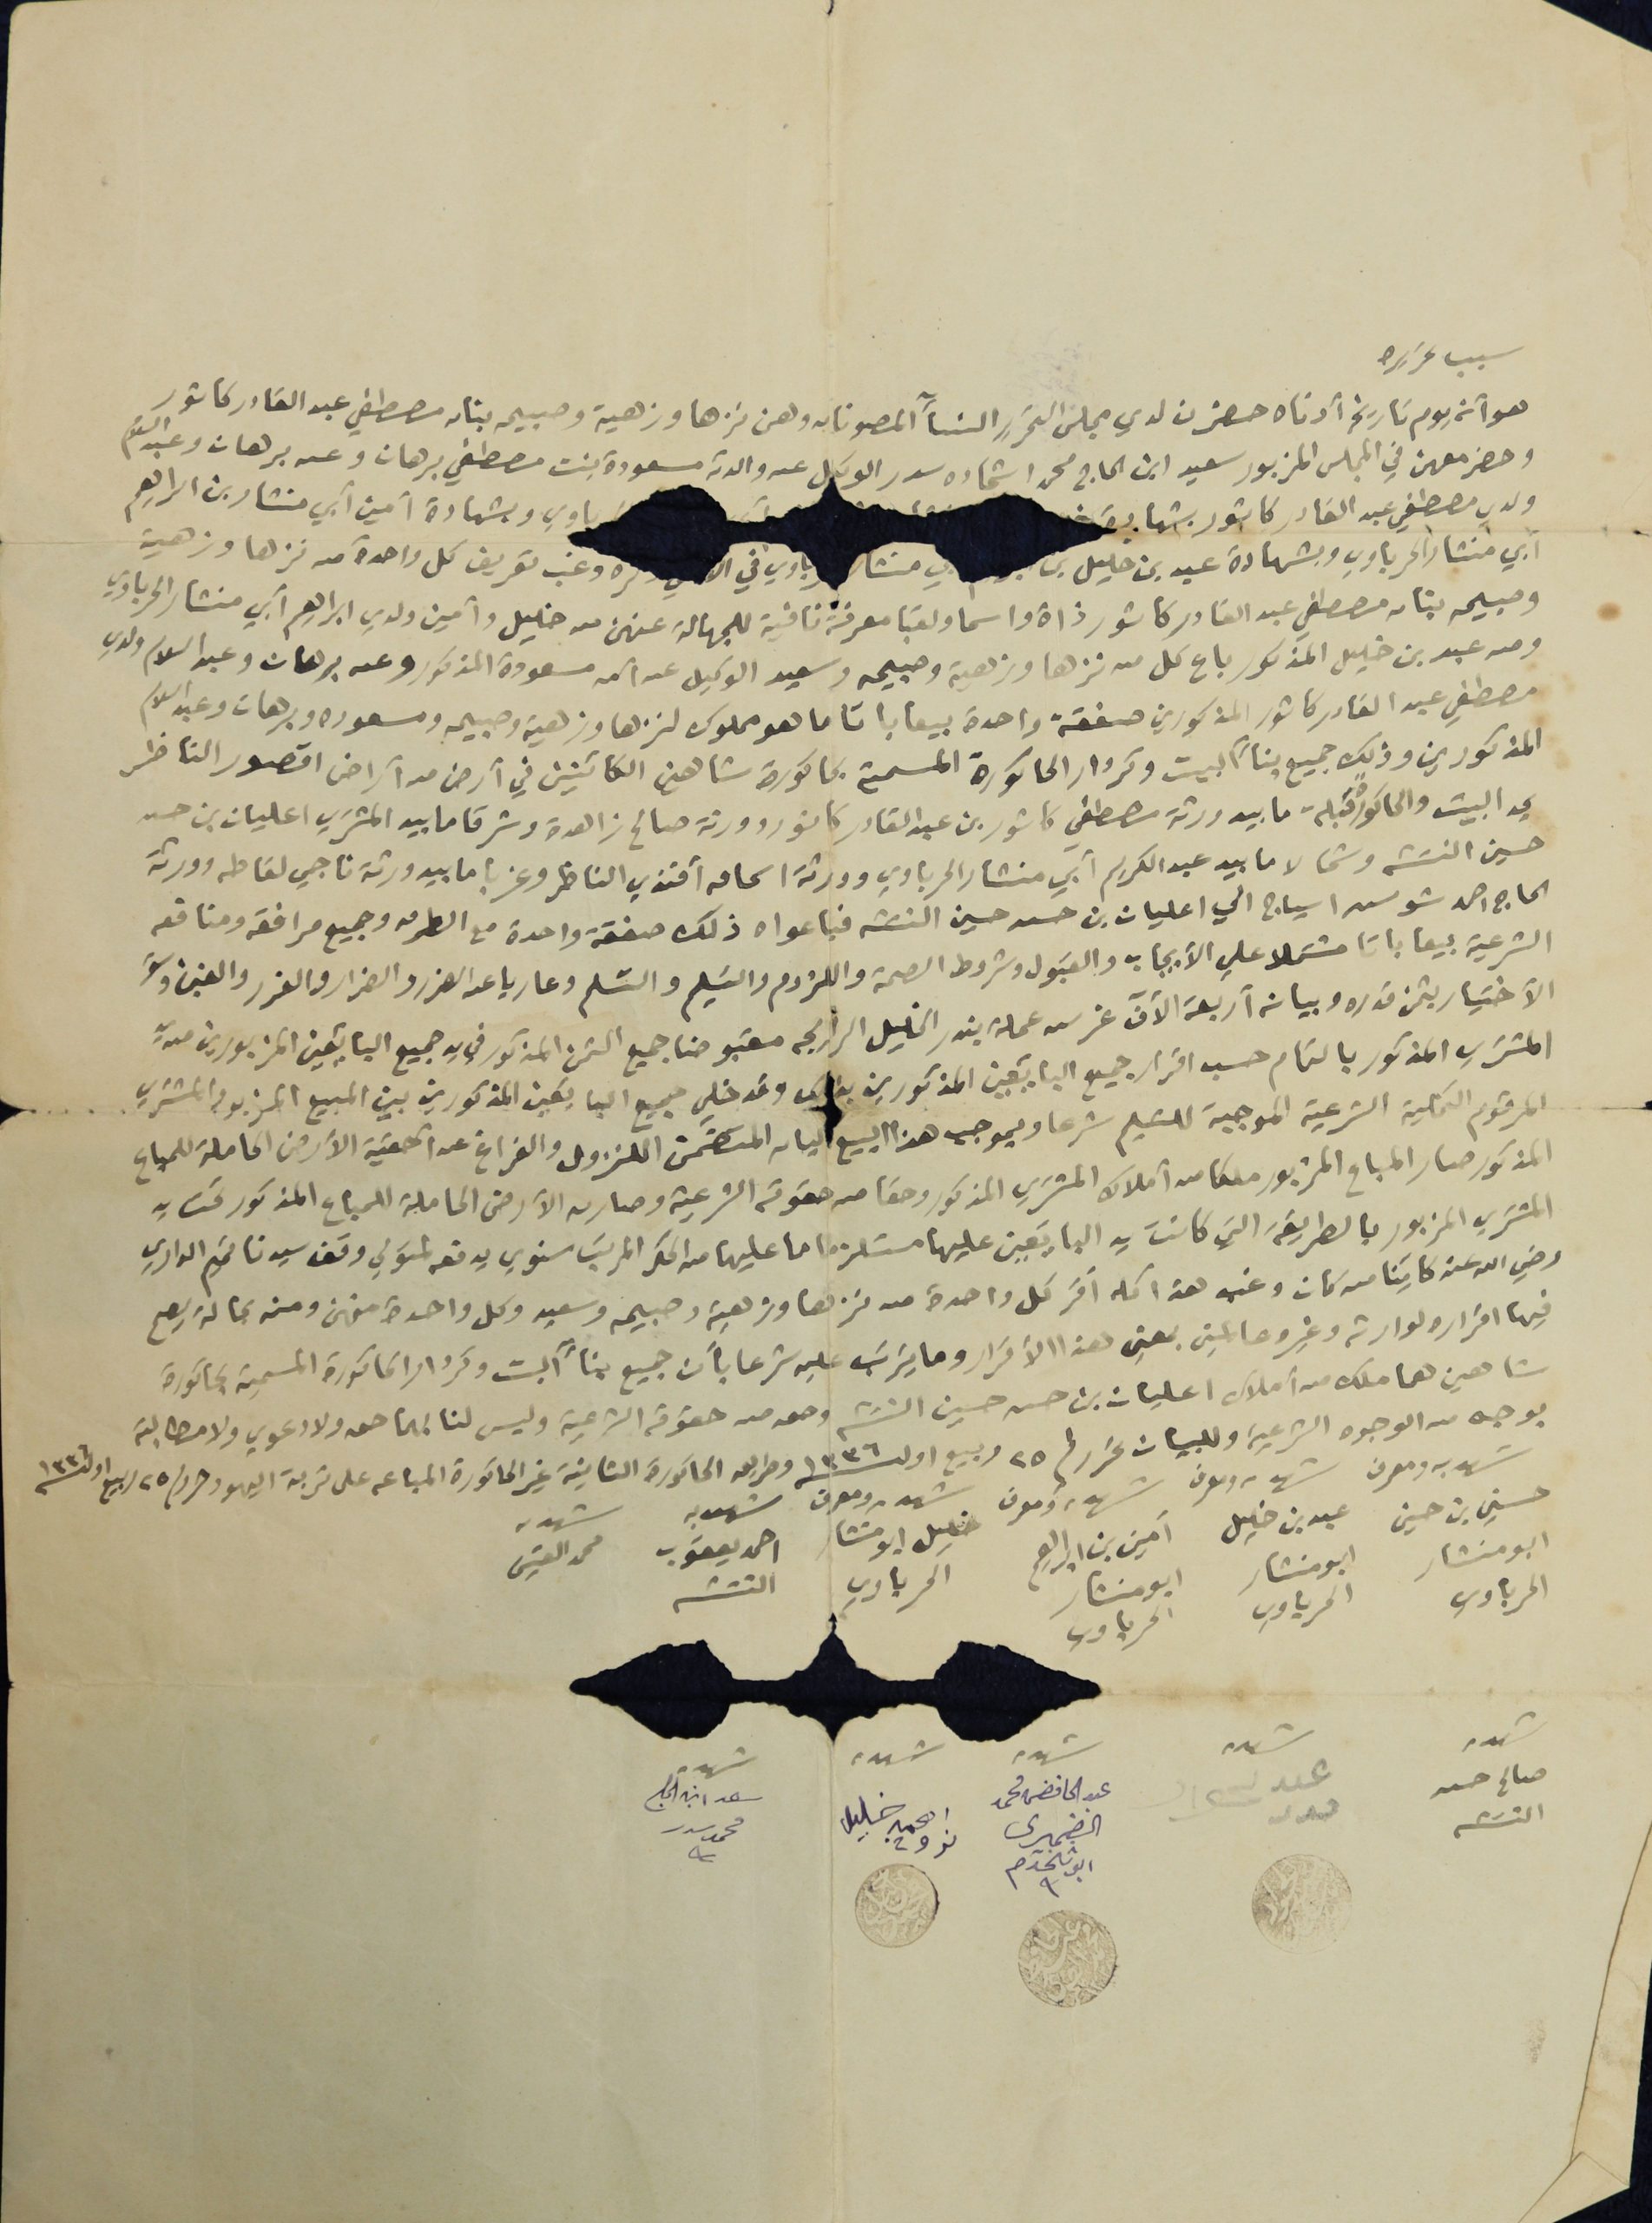 سبب تحريره
هو أنه يوم تاريخ أدناه حضرن لدي مجلس التحرير النسآ المصونات وهن نزها وزهية وصبيحه بنات مصطفي عبد القادر كاتور
وحضر معهن في المجلس المزبور سعيد ابن الحاج محمد اشحاده سدر الوكيل عن والدته مسعودة بنت مصطفي برهان وعن برهان وعبد السلام
ولدي مصطفي عبد القادر كاتور بشهادة باوي وبشهادة أمين أبي منشار بن ابراهيم
أبي منشار الحرباوي وبشهادة عبد بن خليل بن أبي منشار الحرباوي في وغب تعريف كل واحدة من نزها وزهية
وصبيحه بنات مصطفي عبد القادر كاتور ذاة واسما ولقبا معرفة نافية للجهالة عنهن من خليل وأمين ولدي ابراهيم أبي منشار الحرباوي
ومن عبد بن خليل المذكور باع كل من نزها وزهية وصبيحه وسعيد الوكيل عن أمه مسعودة المذكور وعن برهان وعبد السلام ولدي
مصطفي عبد القادر كاتور المذكورين صفقة واحدة بيعا باتا ما هو مملوك لنزها وزهية وصبيحه ومسعوده وبرهان وعبد السلام
المذكورين وذلك جميع بنآ البيت وكردار الحاكورة المسمية بحاكورة شاهين الكائنين في أرض من أراضي اقصور الناظر
يحد البيت والحاكورة قبلة ما بيد ورثة مصطفي كاتور بن عبد القادر كاتور وورثة صالح زاهدة وشرقا ما بيد المشتري اعليان بن حسن
حسين النتشه وشمالا ما بيد عبد الكريم أبي منشار الحرباوي وورثة اسحاق أفندي الناظر وغربا ما بيد ورثة ناجي لفاطه وورثة
الحاج احمد شومن اسياج الي اعليان بن حسن حسين النتشه فباعواه ذلك صفقة واحدة مع الطرق وجميع مرافقه ومنافعه
الشرعية بيعا باتا مشتملا علي الأيجاب والقبول وشروط الصحة واللزوم والتسليم والتسلم وعاريا عن الضرر والضرار والغرر والغبن وسؤ
الأختيار بثمن قدره وبيانه أربعة الآف غرس عملة بندر الخليل الرايجه مقبوضا جميع الثمن المذكور في يد جميع البايعين المزبورين من يد
المشتري المذكور بالتمام حسب اقرار جميع البايعين المذكورين بذلك وقد خلي جميع البايعين المذكورين بين المبيع المزبور والمشتري
المرقوم التخلية الشرعية الموجبة للتسليم شرعا وبموجب هذا البيع البات المتضمن النزول والفراغ عن أحقية الأرض الحاملة للمباع
المذكور صار المباع المزبور ملكا من أملاك المشتري المذكور وحقا من حقوقه الشرعية وصارت الأرض الحاملة للمباع المذكور تحت يد
المشتري المزبور بالطريقة التي كانت يد البايعين عليها مستلزما ما عليها من الحكر المرتب سنوي يدفعه لمتولي وقف سيدنا تميم الداري
رضي الله عنه كاينا من كان وغب هذا كله أقر كل واحدة من نزها وزهية وصبيحه وسعيد وكل واحدة منهن ومنه بحالة يصح
فيها اقراره لوارثه وغيره عالمين بمعني هذا الأقرار وما يترتب عليه شرعا بأن جميع بنآ البيت وكردار الحاكورة المسمية بحاكورة
شاهين هما ملك من أملاك اعليان بن حسن حسين النتشه وحق من حقوقه الشرعية وليس لنا بهما حق ولا دعوي ولا مطالبة
بوجه من الوجوه الشرعية وللبيان تحرر في ٢٥ ربيع اول سنة ١٣٣٦ وطريق الحاكورة الثانية غير الحاكورة المباعه علي تربة اليهود حرر في ٢٥ ربيع اول سنة ١٣٣٦
شهد به ومعرف شهد به ومعرف شهد به ومعرف شهد به ومعرف شهد به شهد به
حسني بن حسين عبد بن خليل أمين بن ابراهيم خليل ابو منشار احمد يعقوب محمد القيسي
ابو منشار ابو منشار ابو منشار الحرباوي النتشه
الحرباوي الحرباوي الحرباوي
شهد به شهد به شهد به شهد به شهد به
صالح حسن عبد الحافض محمد احمد خليل سعد ابن الحاج
النتشه نوح محمد سدر